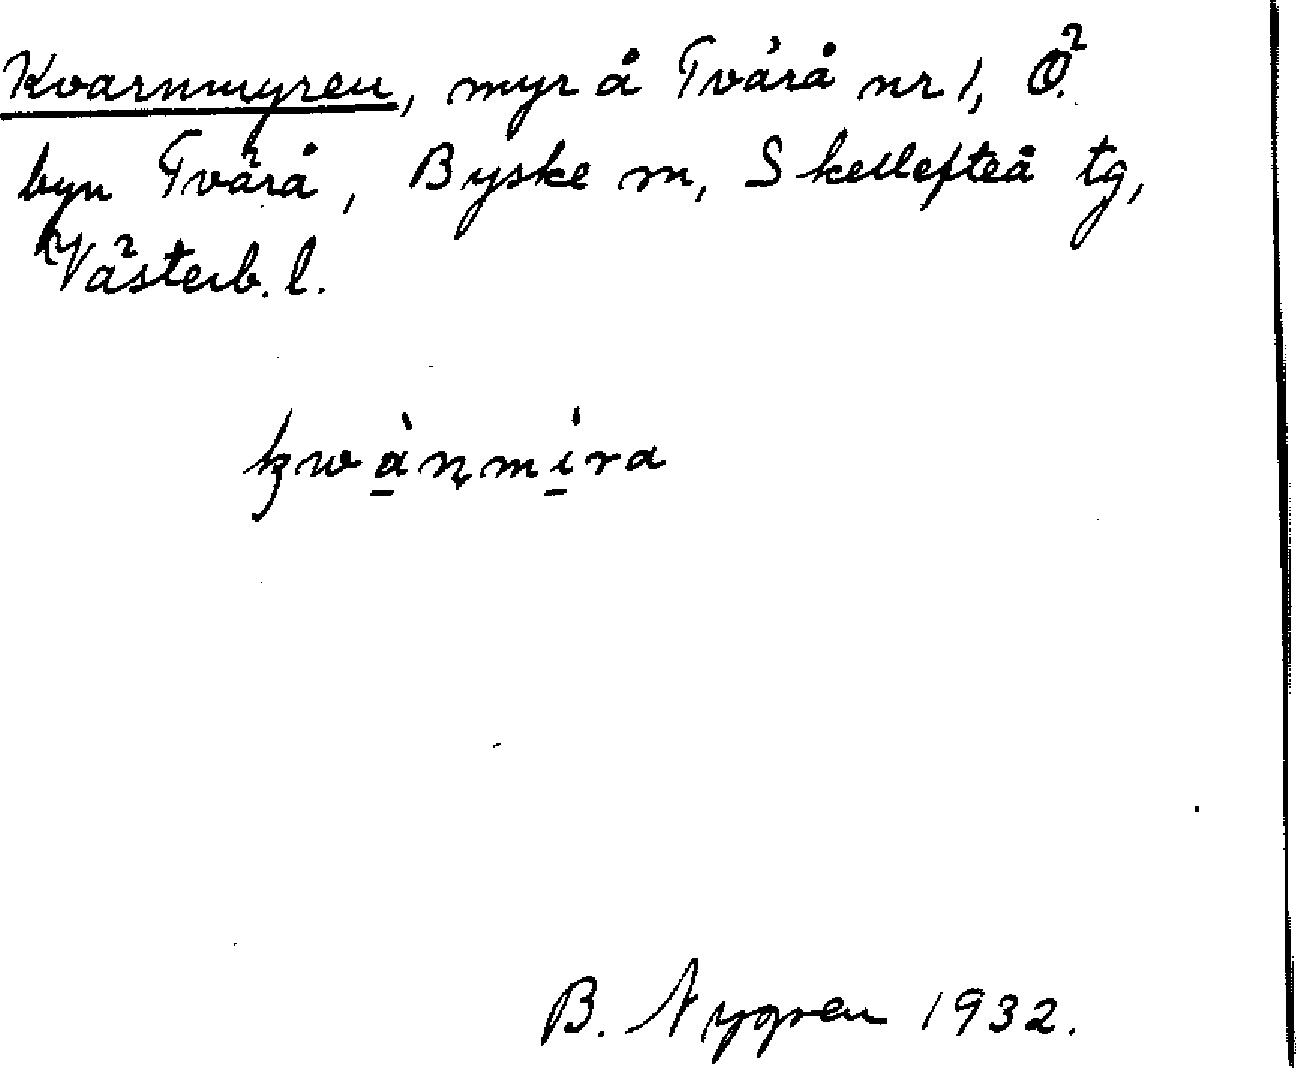 Kvarnmyren, myr å Tvärå nr 1, Ö.
byn Tvärå, Byske sn, Skellefteå tg,
Västerb. l.
kwànmíra
B. Nygren 1932.